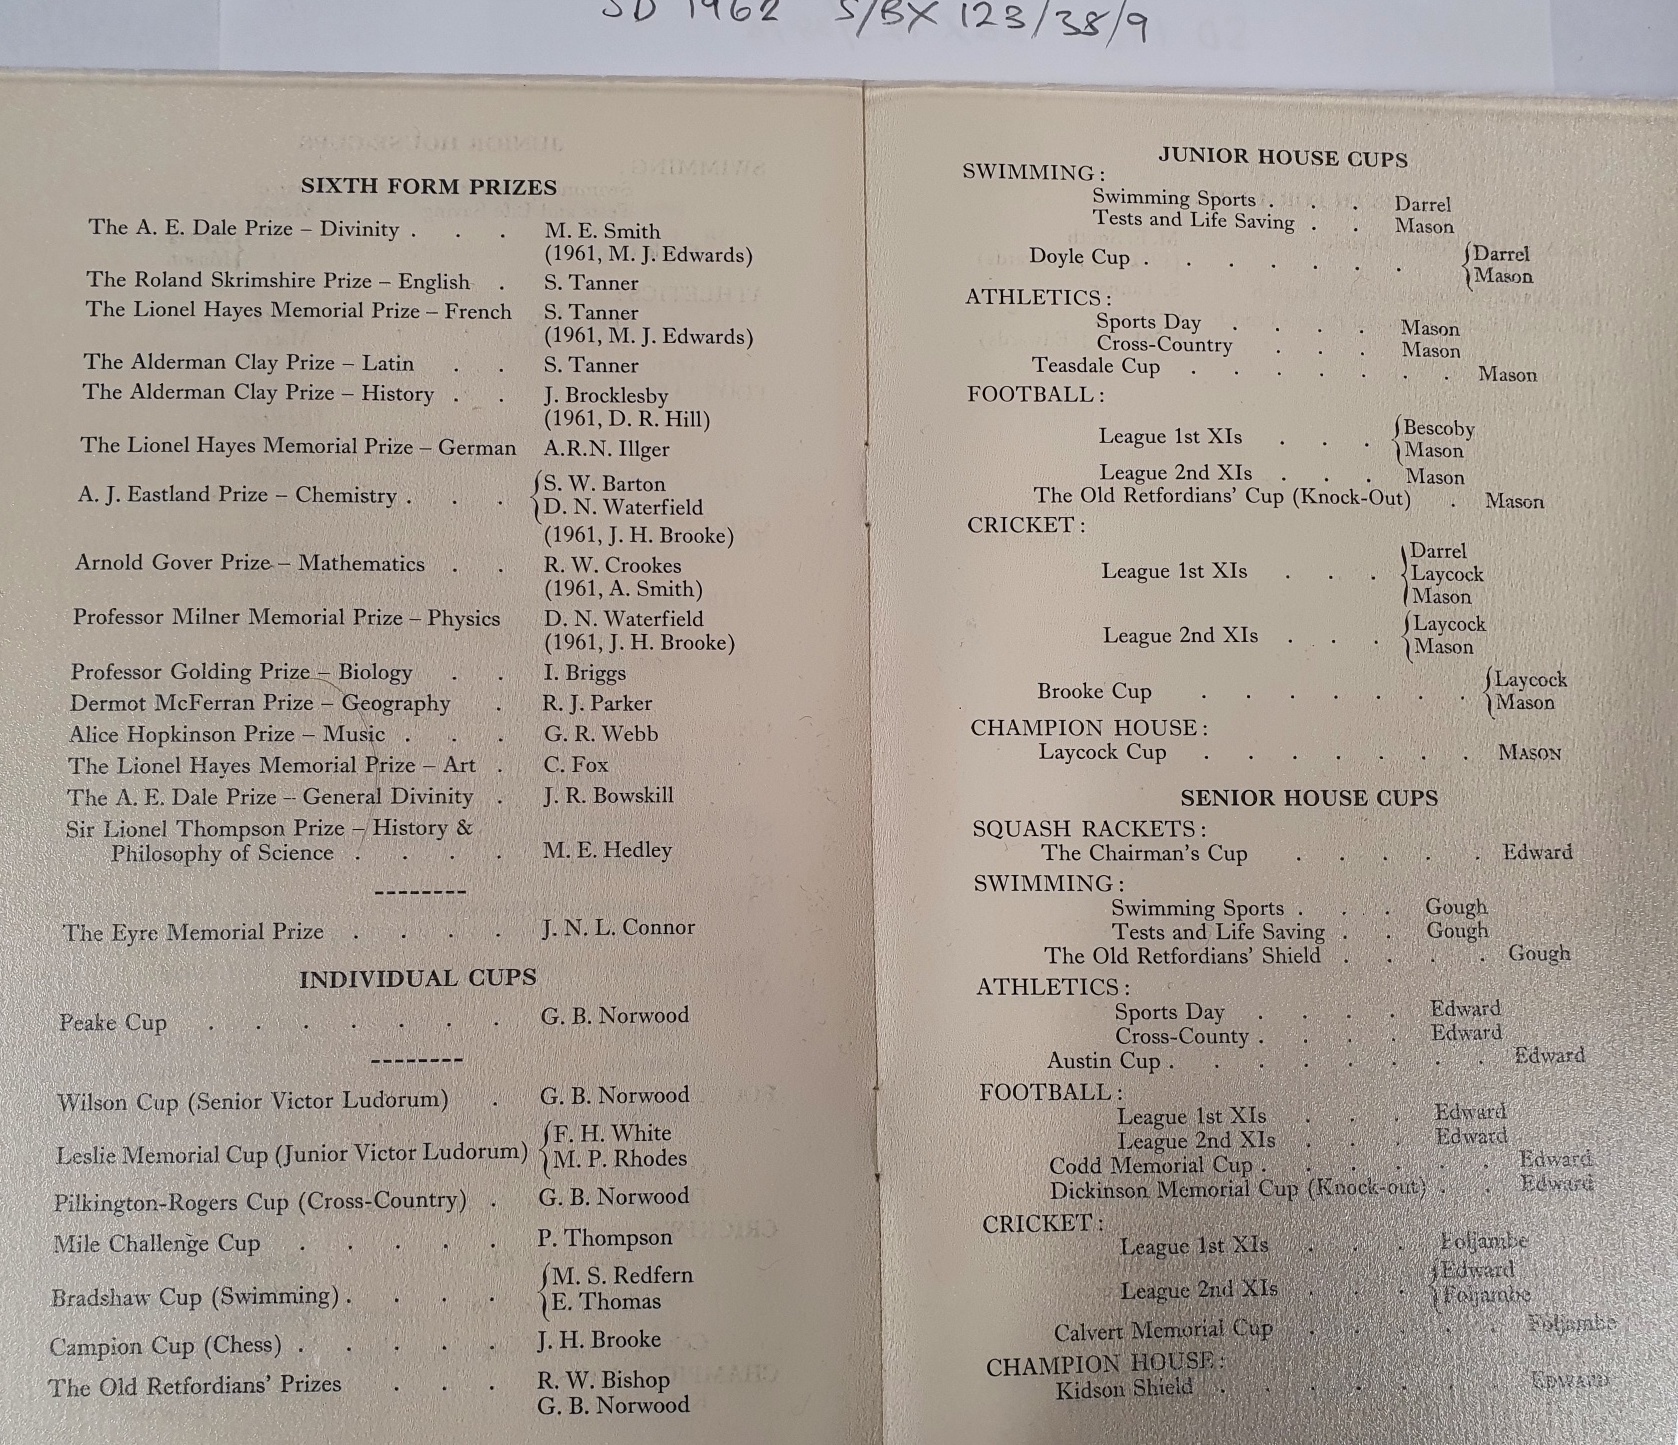 SD 1962 S/BX 123/38/9
SIXTH FORM PRIZES
The A. E. Dale Prize – Divinity . . . M. E. Smith
(1961, M. J. Edwards)
The Roland Skrimshire Prize – English . S. Tanner
The Lionel Hayes Memorial Prize – French S. Tanner
(1961, M. J. Edwards)
The Alderman Clay Prize – Latin . . S. Tanner
The Alderman Clay Prize – History . . J. Brocklesby
(1961, D. R. Hill)
The Lionel Hayes Memorial Prize – German A.R.N. Illger
A. J. Eastland Prize – Chemistry . . . { S. W. Barton
D. N. Waterfield
(1961, J. H. Brooke)
Arnold Gover Prize – Mathematics . . R. W. Crookes
(1961, A. Smith)
Professor Milner Memorial Prize – Physics D. N. Waterfield
(1961, J. H. Brooke)
Professor Golding Prize – Biology . . I. Briggs
Dermot McFerran Prize – Geography . R. J. Parker
Alice Hopkinson Prize – Music . . . G. R. Webb
The Lionel Hayes Memorial Prize – Art . C. Fox
The A. E. Dale Prize – General Divinity . J. R. Bowskill
Sir Lionel Thompson Prize – History &
Philosophy of Science . . . . M. E. Hedley
--------
The Eyre Memorial Prize . . . . J. N. L. Connor
INDIVIDUAL CUPS
Peake Cup . . . . . . . G. B. Norwood
--------
Wilson Cup (Senior Victor Ludorum) . G. B. Norwood
Leslie Memorial Cup (Junior Victor Ludorum) { F. H. White
M. P. Rhodes
Pilkington-Rogers Cup (Cross-Country) . G. B. Norwood
Mile Challenge Cup . . . . . P. Thompson
Bradshaw Cup (Swimming) . . . . { M. S. Redfern
E. Thomas
Campion Cup (Chess) . . . . . J. H. Brooke
The Old Retfordians' Prizes . . . R. W. Bishop
G. B. Norwood
JUNIOR HOUSE CUPS
SWIMMING:
Swimming Sports . . . Darrel
Tests and Life Saving . . Mason
Doyle Cup . . . . . . . { Darrel
Mason
ATHLETICS:
Sports Day . . . . Mason
Cross-Country . . . Mason
Teasdale Cup . . . . . . . Mason
FOOTBALL:
League 1st XIs . . . { Bescoby
Mason
League 2nd XIs . . . Mason
The Old Retfordians' Cup (Knock-Out) . Mason
CRICKET:
League 1st XIs . . . { Darrel
Laycock
Mason
League 2nd XIs . . . { Laycock
Mason
Brooke Cup . . . . . . . { Laycock
Mason
CHAMPION HOUSE:
Laycock Cup . . . . . . . MASON
SENIOR HOUSE CUPS
SQUASH RACKETS:
The Chairman's Cup . . . . . Edward
SWIMMING:
Swimming Sports . . . Gough
Tests and Life Saving . . Gough
The Old Retfordians' Shield . . . . Gough
ATHLETICS:
Sports Day . . . . Edward
Cross-County . . . . Edward
Austin Cup . . . . . . . . Edward
FOOTBALL:
League 1st XIs . . . Edward
League 2nd XIs . . . Edward
Codd Memorial Cup . . . . . . Edward
Dickinson Memorial Cup (Knock-out) . . Edward
CRICKET:
League 1st XIs . . . Foljambe
League 2nd XIs . . . { Edward
Foljambe
Calvert Memorial Cup . . . . . Foljambe
CHAMPION HOUSE:
Kidson Shield . . . . . . . EDWARD